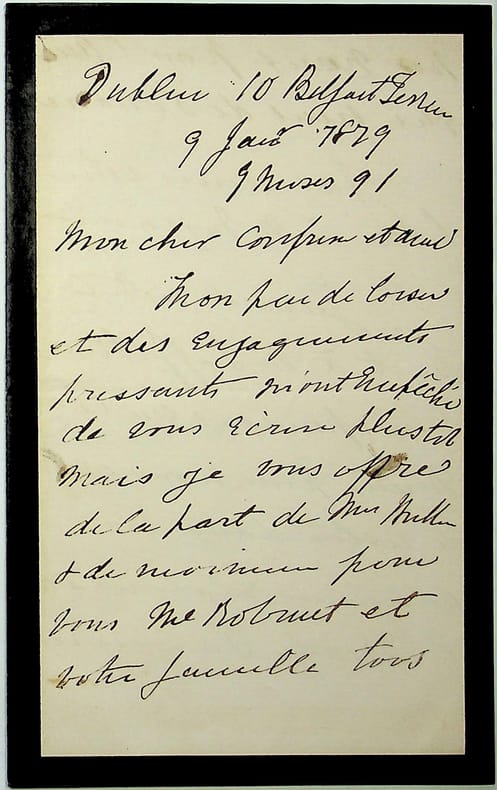 Dublin 10 Belfast Terrace
9 Janr 1879
9 Moses 91
Mon cher Confrere et ami
Mon peu de loisir
et des Engagements
pressants m'ont Empêché
de vous Ecrire plustot
mais je vous offre
de la part de Mrs
& de moi meme pour
vous Me Robinet et
votre famille tous